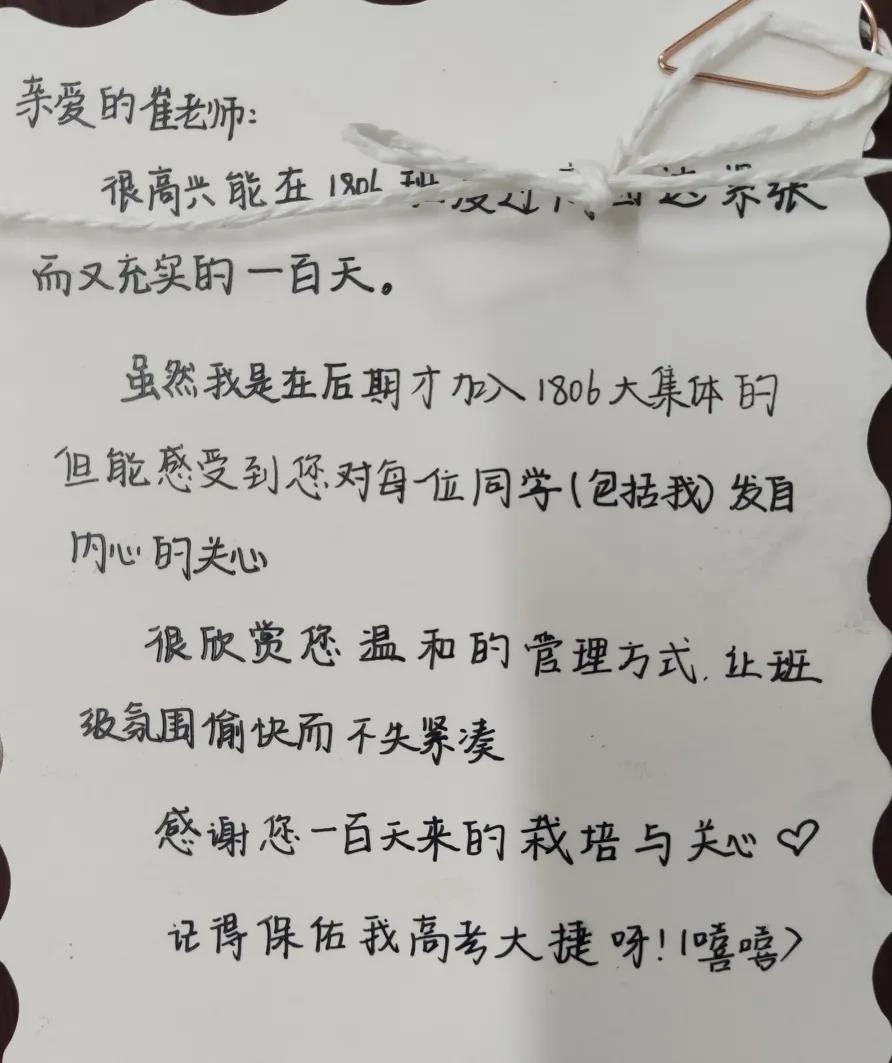 亲爱的崔老师:
很高兴能在1806班度过这紧张
而又充实的一百天。
虽然我是在后期才加入1806大集体的
但能感受到您对每一位同学(包括我)发自
内心的关心
很欣赏您温和的管理方式,让班
级氛围愉快而不失紧凑
感谢您一百天来的栽培与关心♡
记得保佑我高考大捷呀!(嘻嘻)